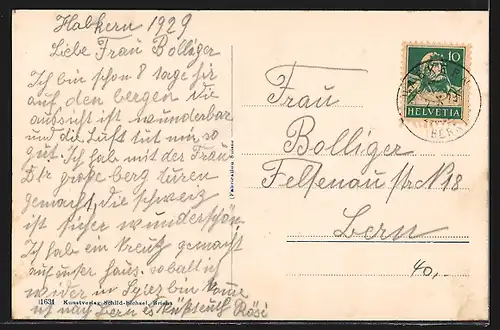 Habkern 1929
Liebe Frau Bolliger
Ich bin schon 8 tage hir
auf den bergen die
aussicht ist wunderbar
und die Luft tut mir so
gut. Ich hab mit der Frau
Dr grose berg turen
gemacht, die schweiz
ist sicher wunderschön.
Ich hab ein kreutz gemacht
auf unser haus, sobalt ich
wider in Spiez bin kome
ich nach Bern es Rösi
1631 Kunstverlag Schild-Bichsel, Brienz
(Fabrication Suisse)
10
HELVETIA
HABKERN
BERN
Frau
Bolliger
Felsenaustr N 18
Bern
40,